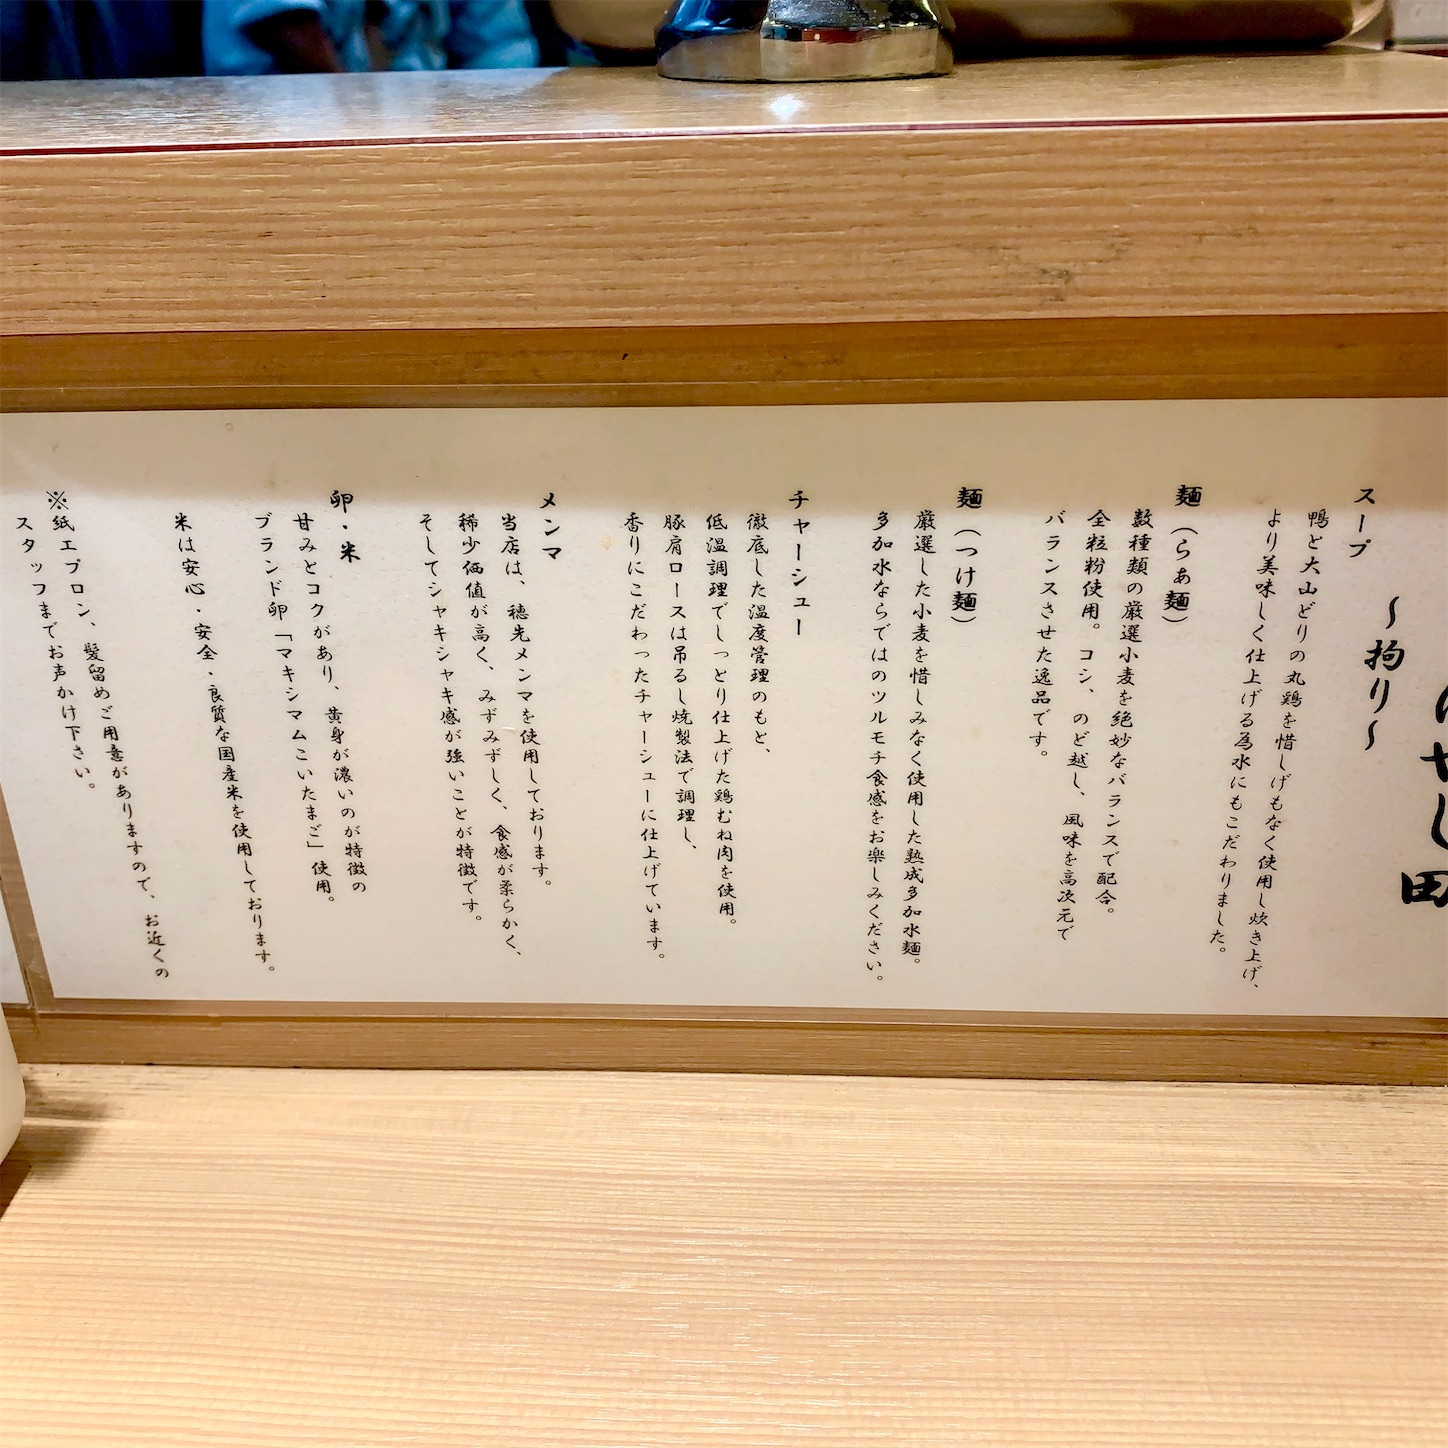 はやし田
～拘り～
スープ
鴨と大山どりの丸鶏を惜しげもなく使用し炊き上げ、
より美味しく仕上げる為水にもこだわりました。
麺（らぁ麺）
数種類の厳選小麦を絶妙なバランスで配合。
全粒粉使用。コシ、のど越し、風味を高次元で
バランスさせた逸品です。
麺（つけ麺）
厳選した小麦を惜しみなく使用した熟成多加水麺。
多加水ならではのツルモチ食感をお楽しみください。
チャーシュー
徹底した温度管理のもと、
低温調理でしっとり仕上げた鶏むね肉を使用。
豚肩ロースは吊るし焼製法で調理し、
香りにこだわったチャーシューに仕上げています。
メンマ
当店は、穂先メンマを使用しております。
稀少価値が高く、みずみずしく、食感が柔らかく、
そしてシャキシャキ感が強いことが特徴です。
卵・米
甘みとコクがあり、黄身が濃いのが特徴の
ブランド卵「マキシマムこいたまご」使用。
米は安心・安全・良質な国産米を使用しております。
※紙エプロン、髪留めご用意がありますので、お近くの
スタッフまでお声かけ下さい。